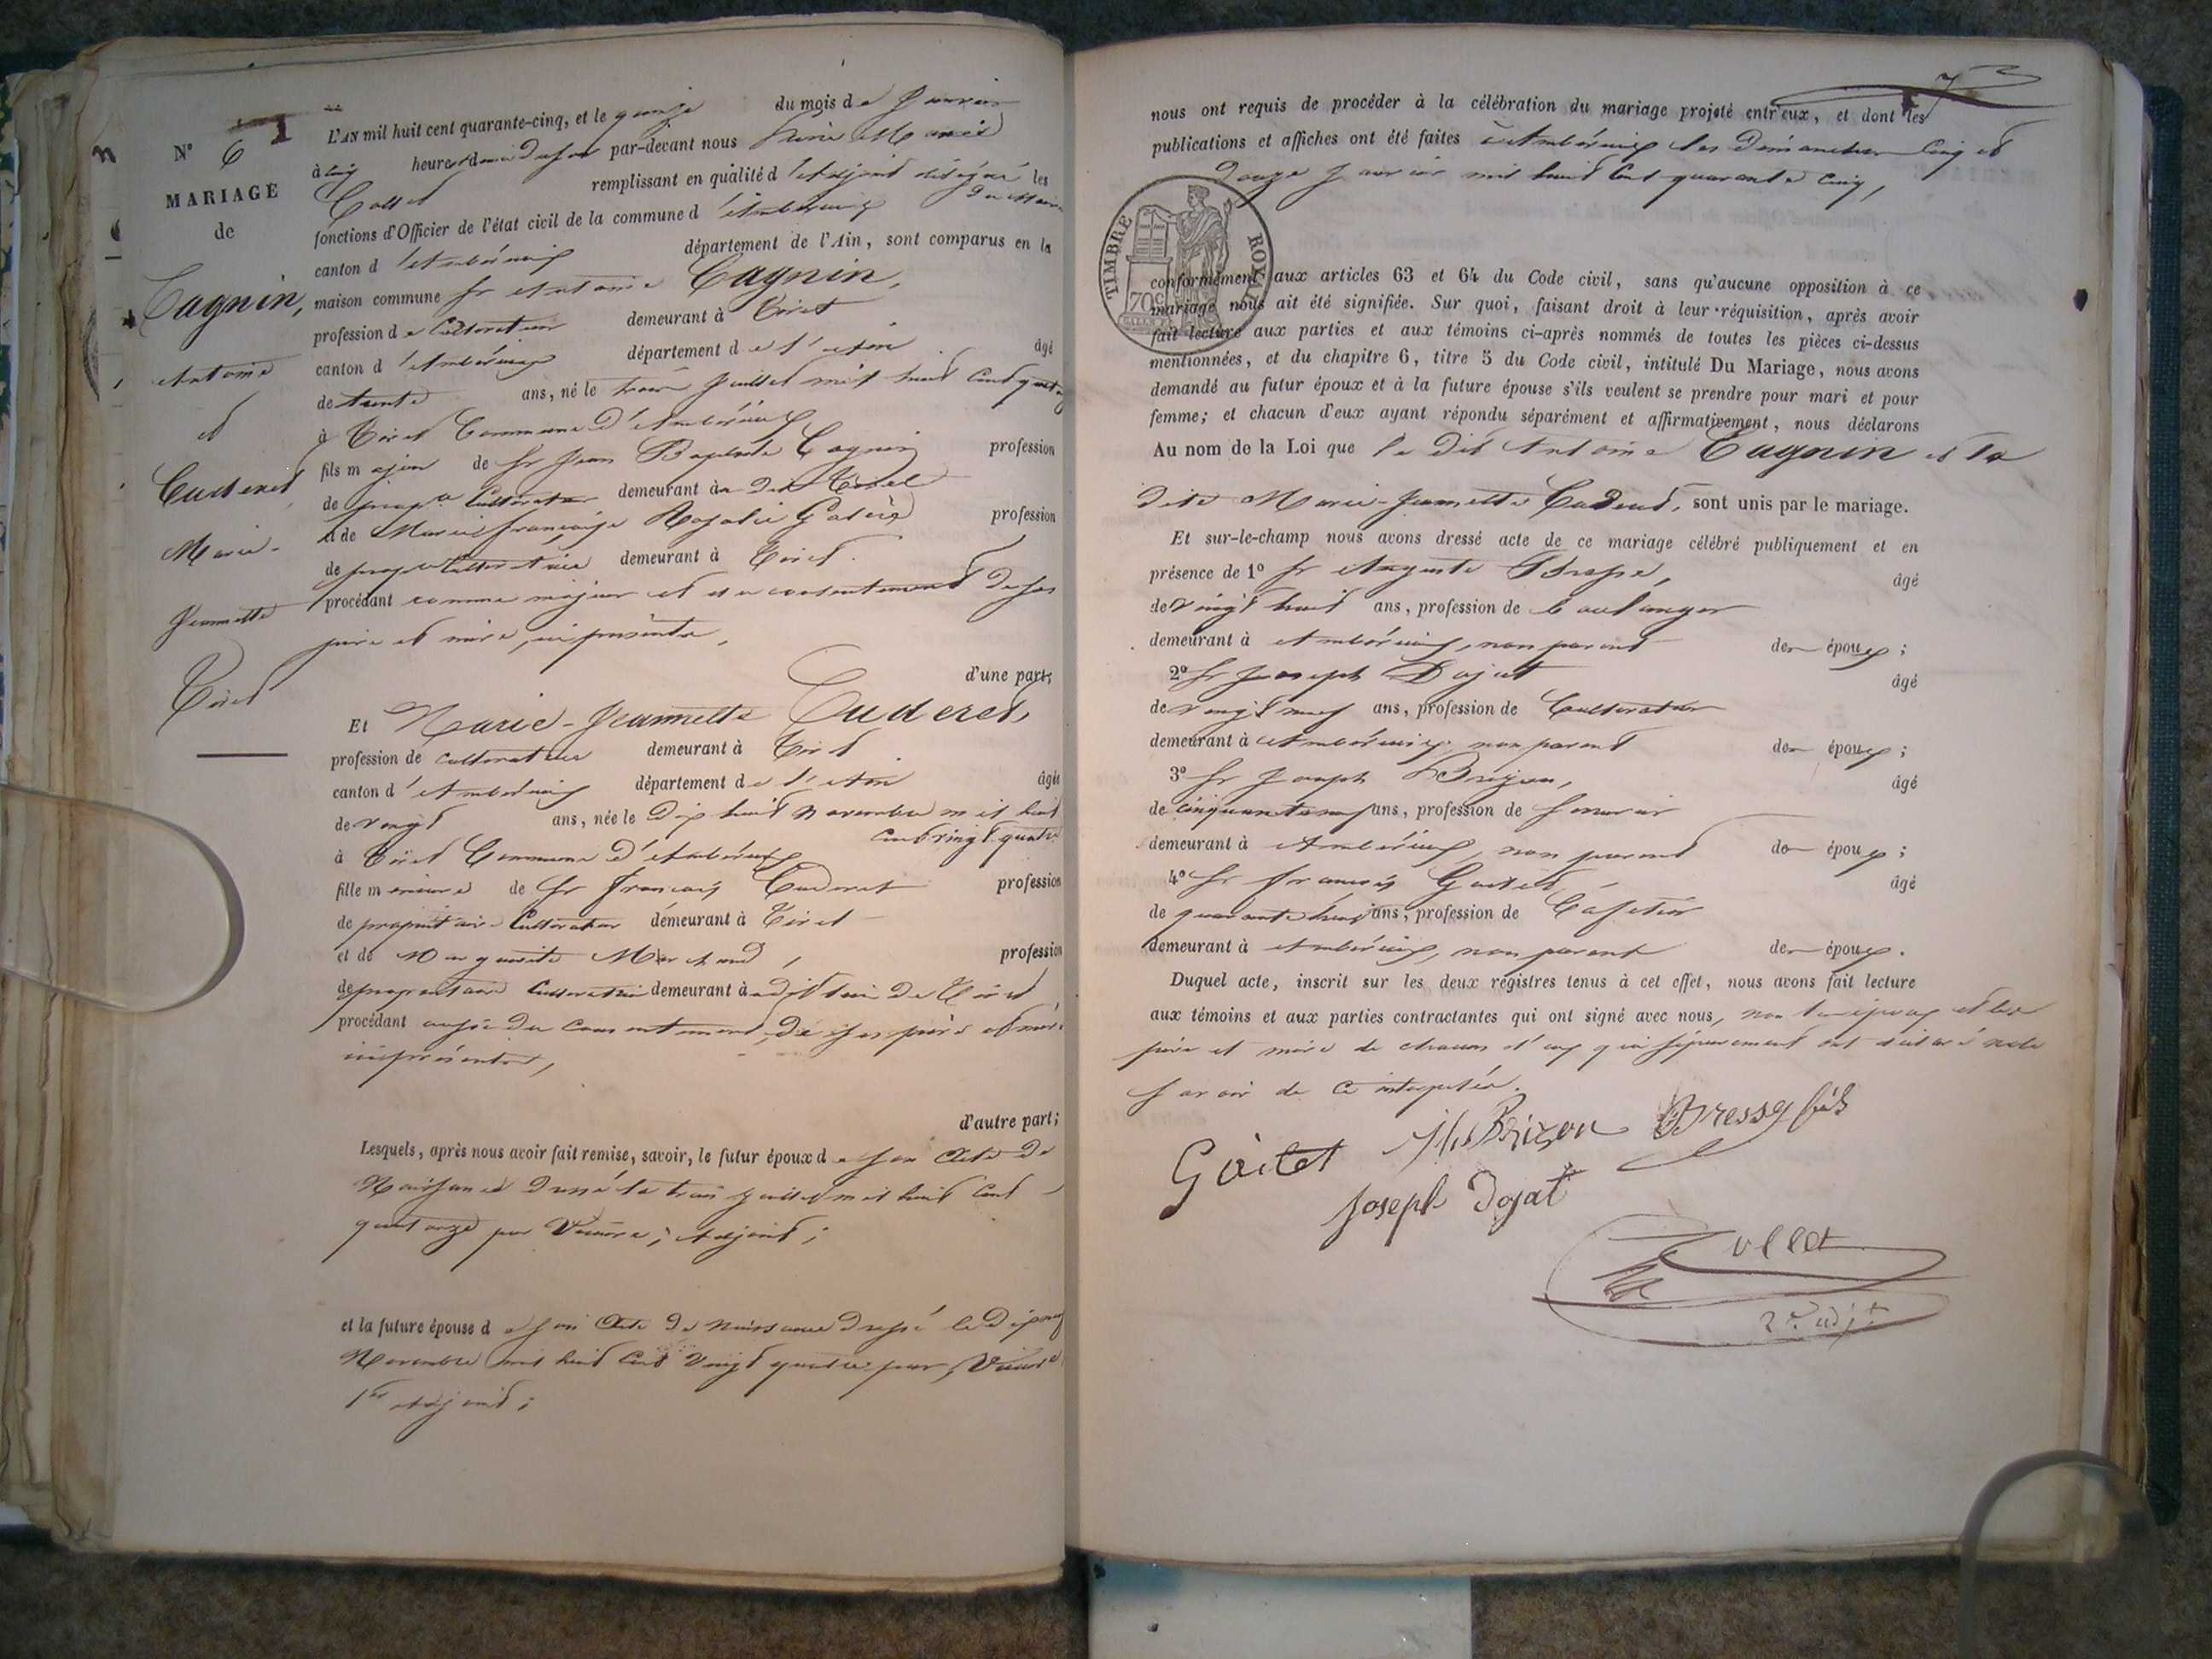 N° 6
MARIAGE
de
Cagnin,
Antoine
et
Cuderet,
Marie-
Jeannette
Tiret
L'AN mil huit cent quarante-cinq, et le quinze du mois de Janvier
à cinq heures du soir par-devant nous Pierre Marie
Collet remplissant en qualité d'Adjoint délégué les
fonctions d'Officier de l'état civil de la commune d'Ambérieux
canton d'Ambérieux département de l'Ain, sont comparus en la
maison commune Sr Antoine Cagnin,
profession de Cultivateur demeurant à Tiret
canton d'Ambérieux département de l'Ain âgé
de trente ans, né le trois Juillet mil huit cent quatorze
à Tiret Commune d'Ambérieux
fils majeur de Sr Jean Baptiste Cagnin profession
de propre Cultivateur demeurant au dit Tiret
et de Marie françoise Rosalie profession
de propre Cultivatrice demeurant à Tiret
procédant comme majeur et du consentement de ses
père et mère, ici présents,
d'une part;
Et Marie-Jeannette Cuderet,
profession de cultivatrice demeurant à Tiret
canton d'Ambérieux département de l'Ain âgée
de vingt ans, née le Dix huit Novembre mil huit
cent vingt quatre
à Tiret Commune d'Ambérieux
fille mineure de Sr François Cuderet profession
de propriétaire Cultivateur demeurant à Tiret
et de Marguerite profession
de propriétaire Cultivatrice demeurant audit lieu de Tiret,
procédant du consentement de ses père et mère
ici présents,
d'autre part;
Lesquels, après nous avoir fait remise, savoir, le futur époux de son Acte de
Naissance Dressé le trois Juillet mil huit Cent
quatorze par Adjoint;
et la future épouse de son Acte de naissance Dressé le Dix neuf
Novembre mil huit Cent Vingt quatre par
1er adjoint;
7
nous ont requis de procéder à la célébration du mariage projeté entr'eux, et dont les
publications et affiches ont été faites à Ambérieux les Dimanches Cinq et
Douze Janvier mil huit Cent quarante cinq,
TIMBRE ROYAL
70c
conformément aux articles 63 et 64 du Code civil, sans qu'aucune opposition à ce
mariage nous ait été signifiée. Sur quoi, faisant droit à leur réquisition, après avoir
fait lecture aux parties et aux témoins ci-après nommés de toutes les pièces ci-dessus
mentionnées, et du chapitre 6, titre 5 du Code civil, intitulé Du Mariage, nous avons
demandé au futur époux et à la future épouse s'ils veulent se prendre pour mari et pour
femme; et chacun d'eux ayant répondu séparément et affirmativement, nous déclarons
Au nom de la Loi que le Dit Antoine Cagnin et la
dite Marie-Jeannette Cuderet, sont unis par le mariage.
Et sur-le-champ nous avons dressé acte de ce mariage célébré publiquement et en
présence de 1° Sr Auguste âgé
de vingt huit ans, profession de boulanger
demeurant à Ambérieux, non parent des époux;
2° Sr Joseph Dojat âgé
de vingt neuf ans, profession de Cultivateur
demeurant à Ambérieux, non parent des époux;
3° Sr Joseph Brizon, âgé
de cinquante neuf ans, profession de
demeurant à Ambérieux, non parent des époux;
4° Sr françois Goitet âgé
de quarante huit ans, profession de Cafetier
demeurant à Ambérieux, non parent des époux.
Duquel acte, inscrit sur les deux registres tenus à cet effet, nous avons fait lecture
aux témoins et aux parties contractantes qui ont signé avec nous, non les époux et les
père et mère de chacun d'eux qui séparément ont déclaré ne le
savoir de ce interpellés.
Goitet Jh Brizon Bressy fils
Joseph Dojat
Collet
2e adjt